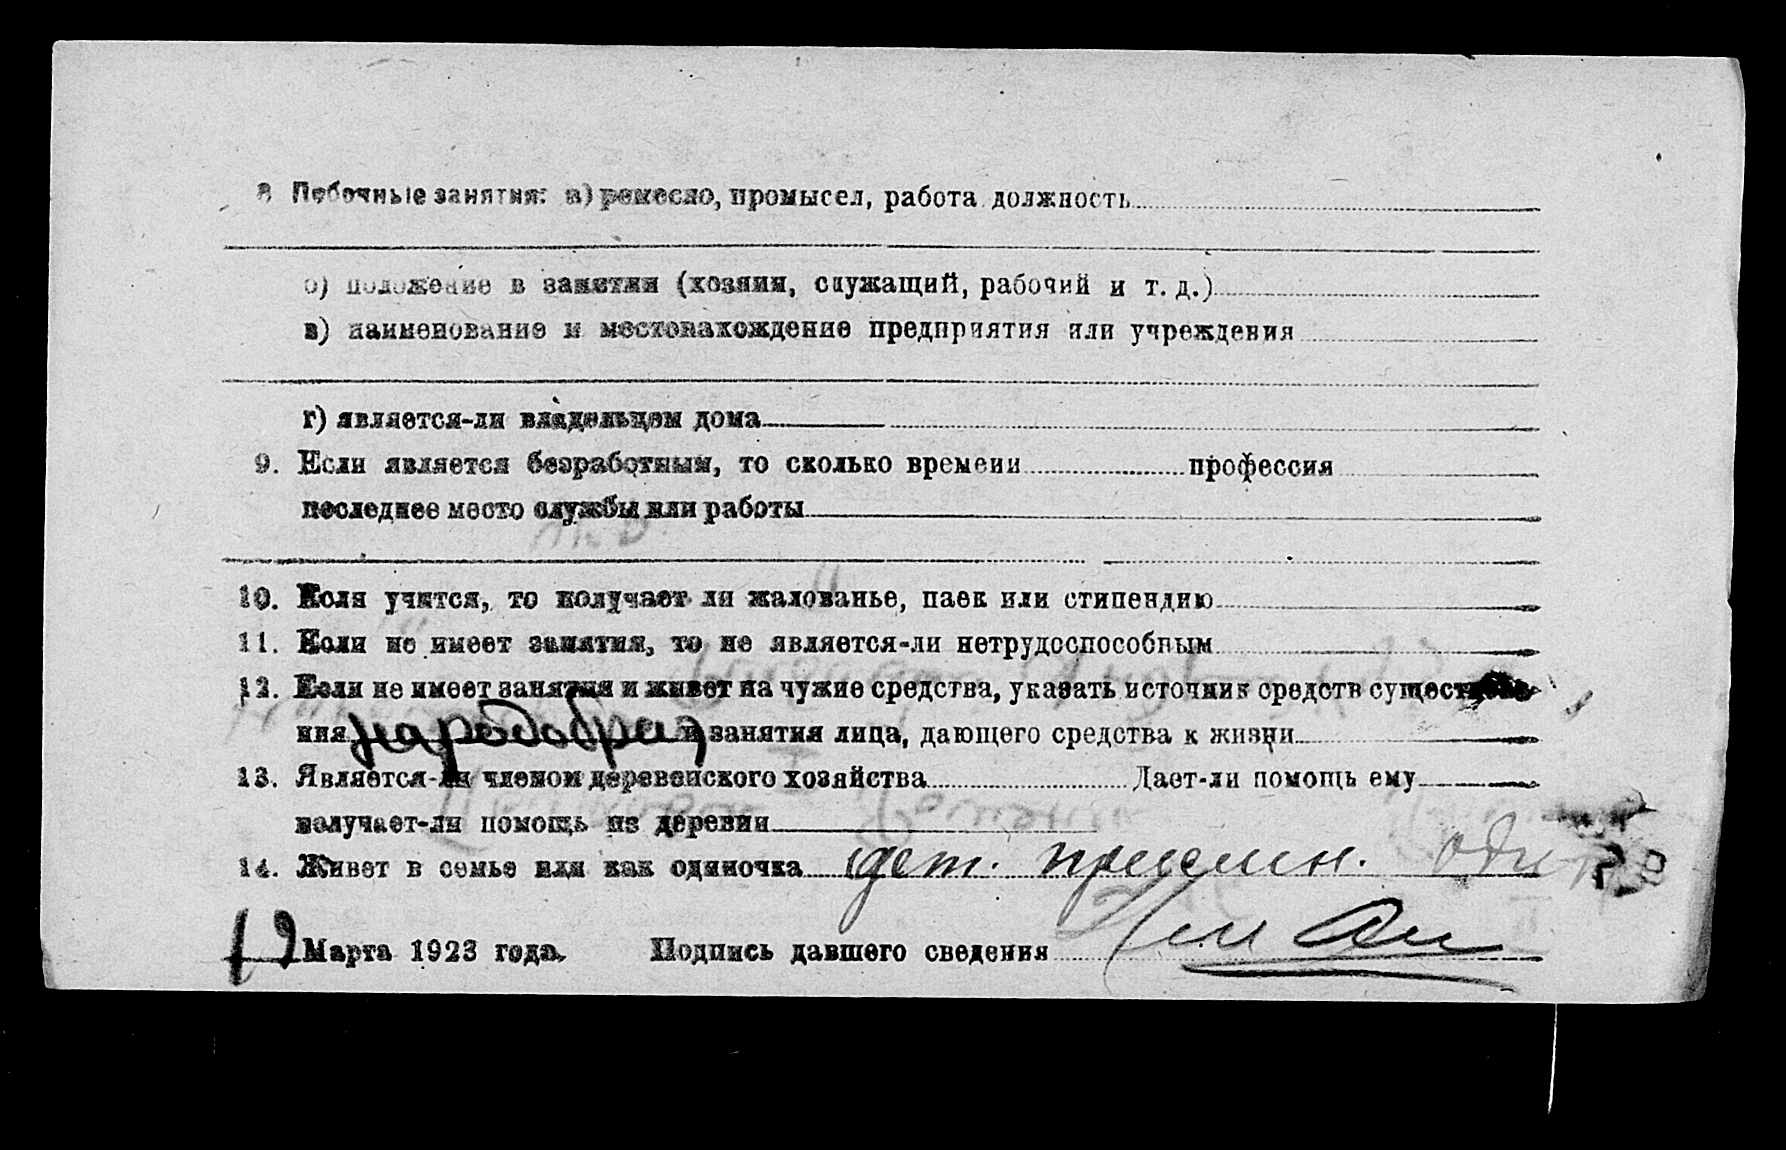 8 Побочные занятия: а) ремесло, промысел, работа должность
б) положение в занятии (хозяин, служащий, рабочий и т. д.)
в) наименование и местонахождение предприятия или учреждения
г) является-ли владельцем дома
9. Если является безработным, то сколько времени профессия
последнее место службы или работы
10. Если учится, то получает ли жалованье, паек или стипендию
11. Если не имеет занятия, то не является-ли нетрудоспособным
12. Если не имеет занятия и живет на чужие средства, указать источник средств существова-
ния наробраз и занятия лица, дающего средства к жизни
13. Является-ли членом деревенского хозяйства Дает-ли помощь ему
получает-ли помощь из деревни
14. Живет в семье или как одиночка дет. приемн.
19 Марта 1923 года. Подпись давшего сведения